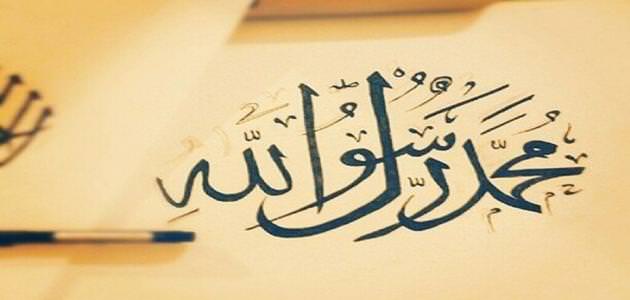 مُحَمَّدٌ رَّسُولُ اللَّهِ